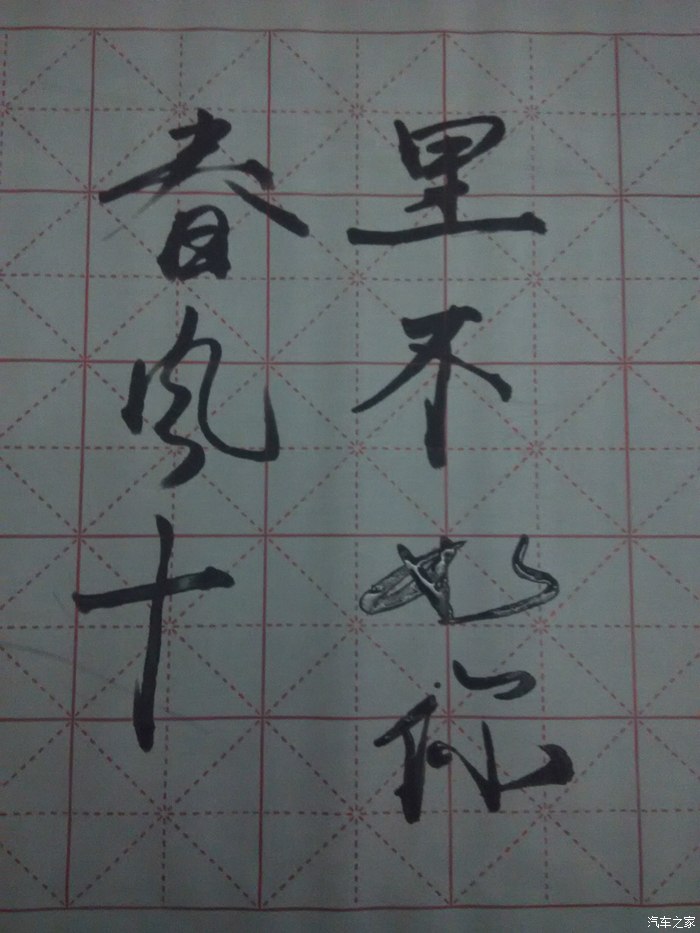 春风十
里不如你
汽车之家